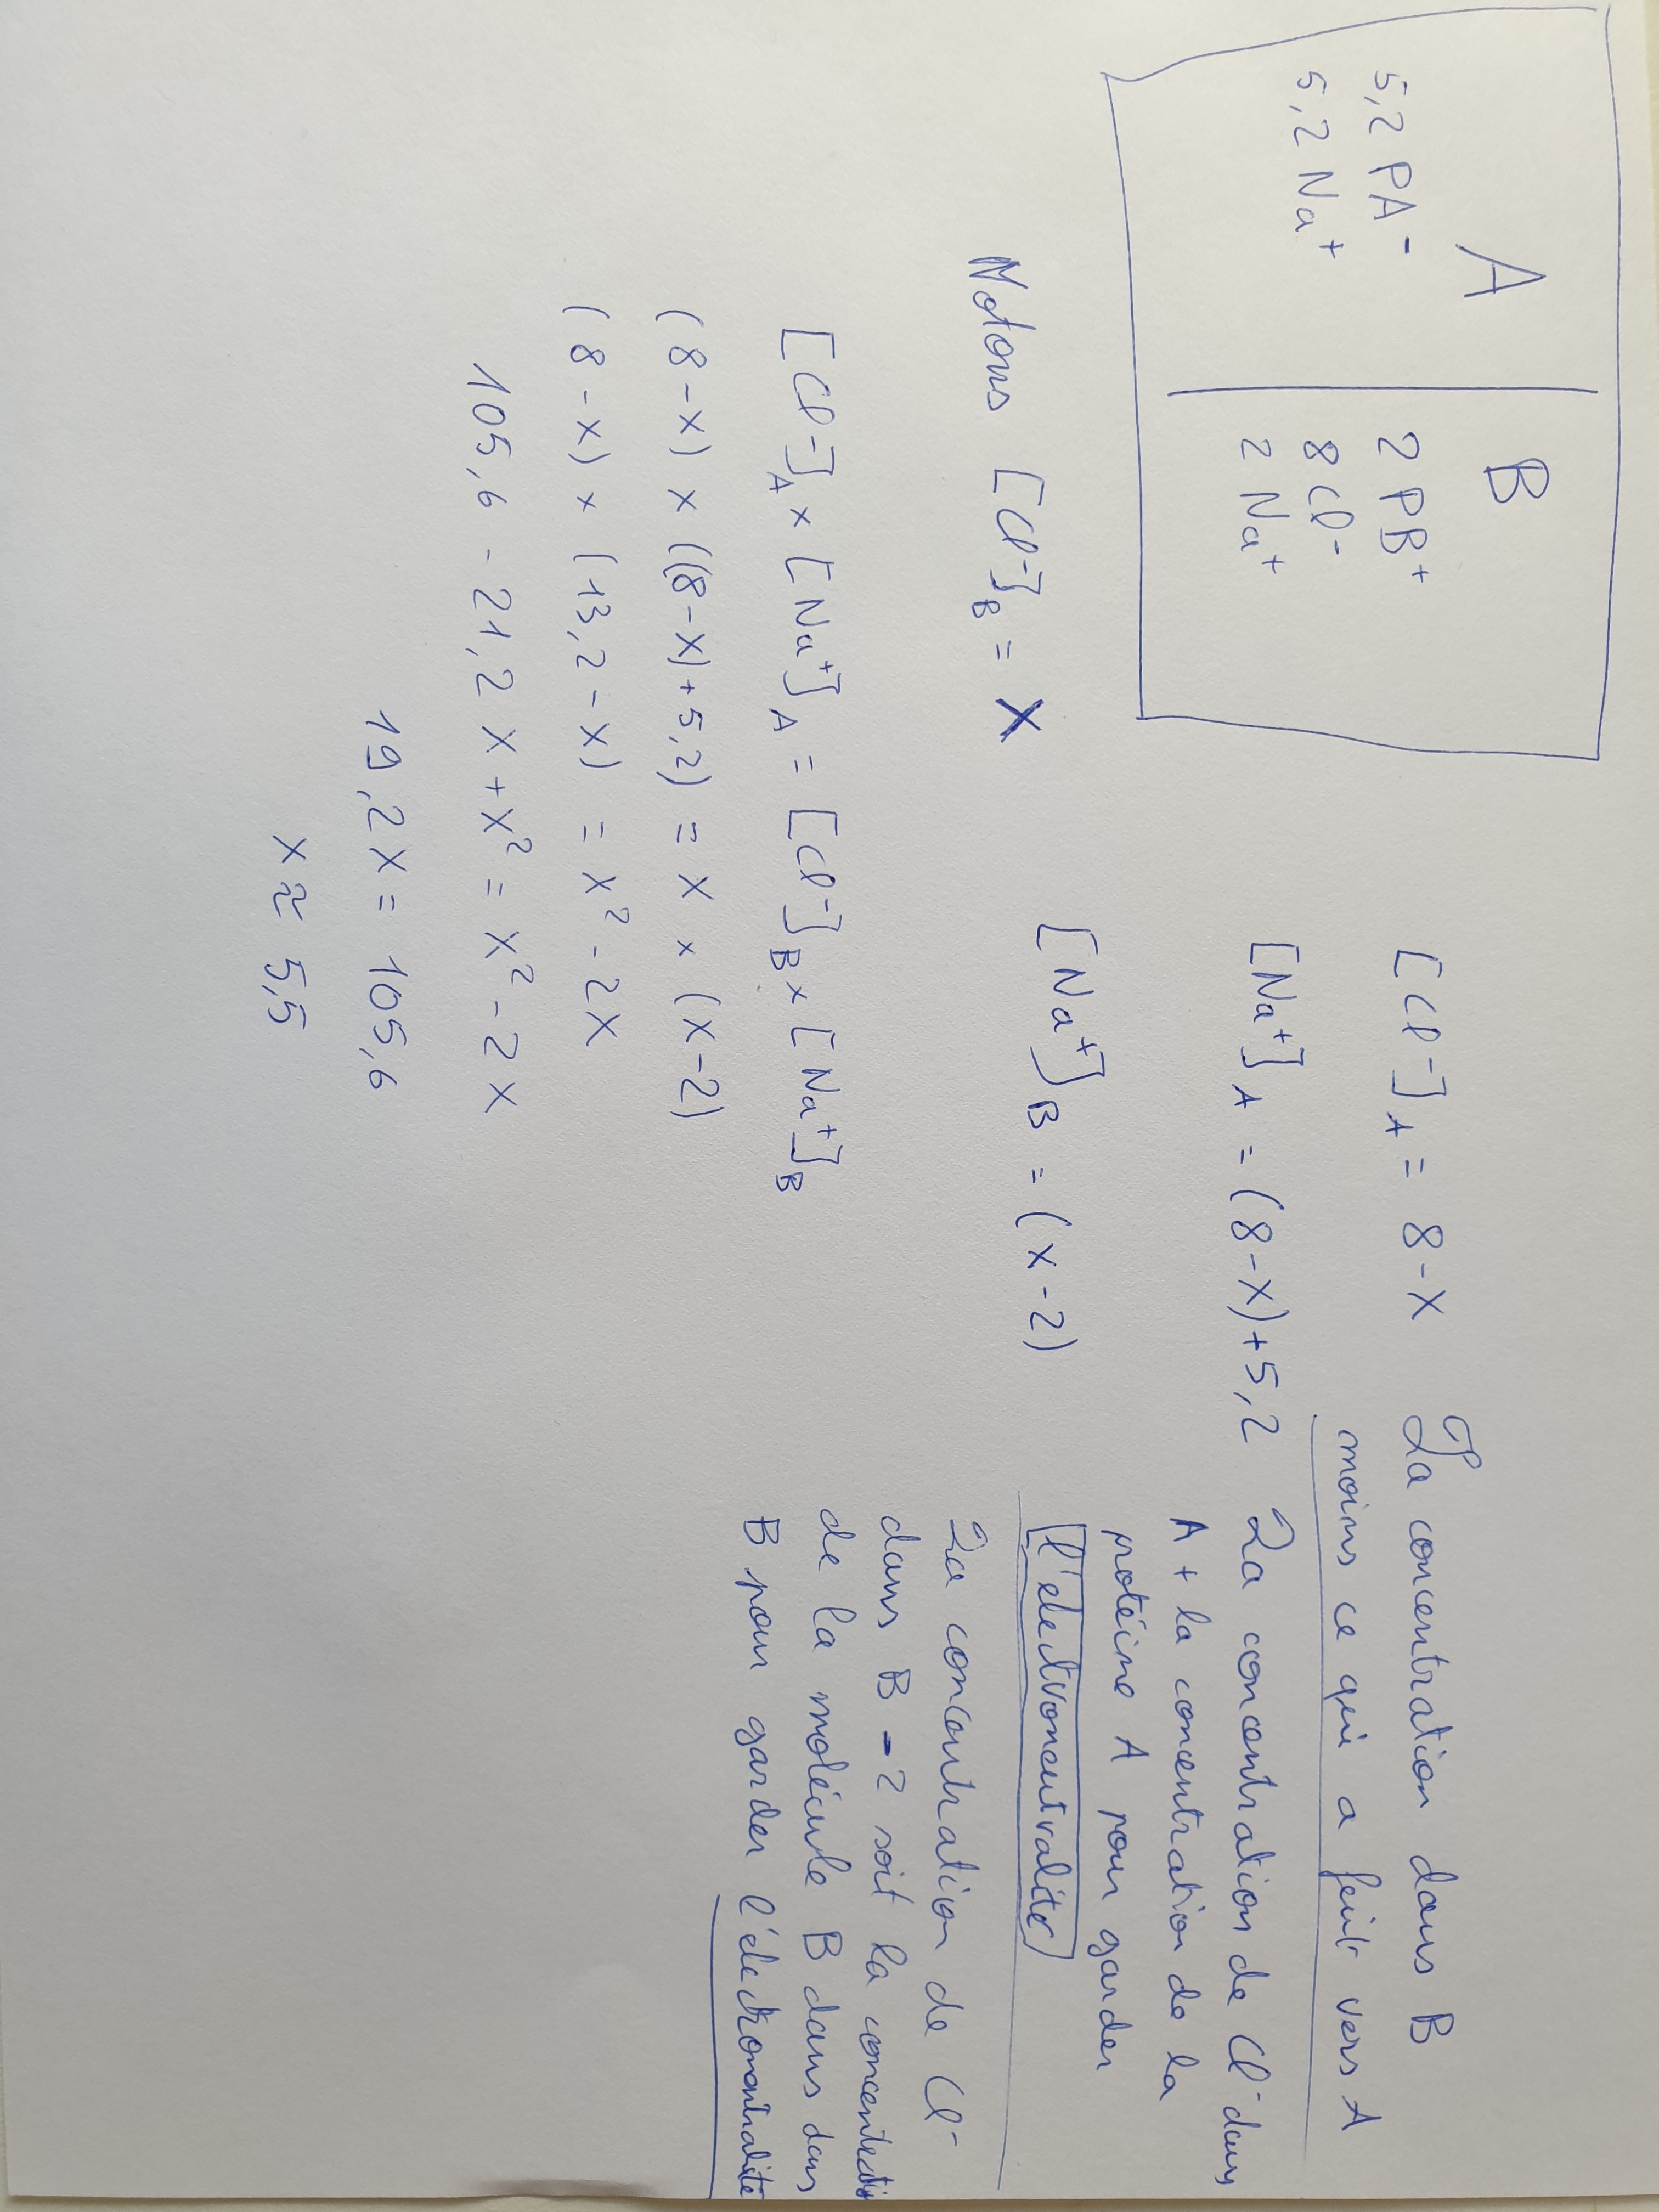 A
5,2 PA⁻
5,2 Na⁺
B
2 PB⁺
8 Cl⁻
2 Na⁺
Notons [Cl⁻]B = X
[Cl⁻]A = 8-X
La concentration dans B
moins ce qui a fuit vers A
[Na⁺]A = (8-X)+5,2
La concentration de Cl⁻ dans
A + la concentration de la
protéine A pour garder
l'électroneutralité
[Na⁺]B = (X-2)
La concentration de Cl⁻
dans B - 2 soit la
de la molécule B dans dans
B pour garder
[Cl⁻]A × [Na⁺]A = [Cl⁻]B × [Na⁺]B
(8-X) × ((8-X)+5,2) = X × (X-2)
(8-X) × (13,2-X) = X²-2X
105,6 - 21,2 X + X² = X² - 2 X
19,2 X = 105,6
X ≈ 5,5